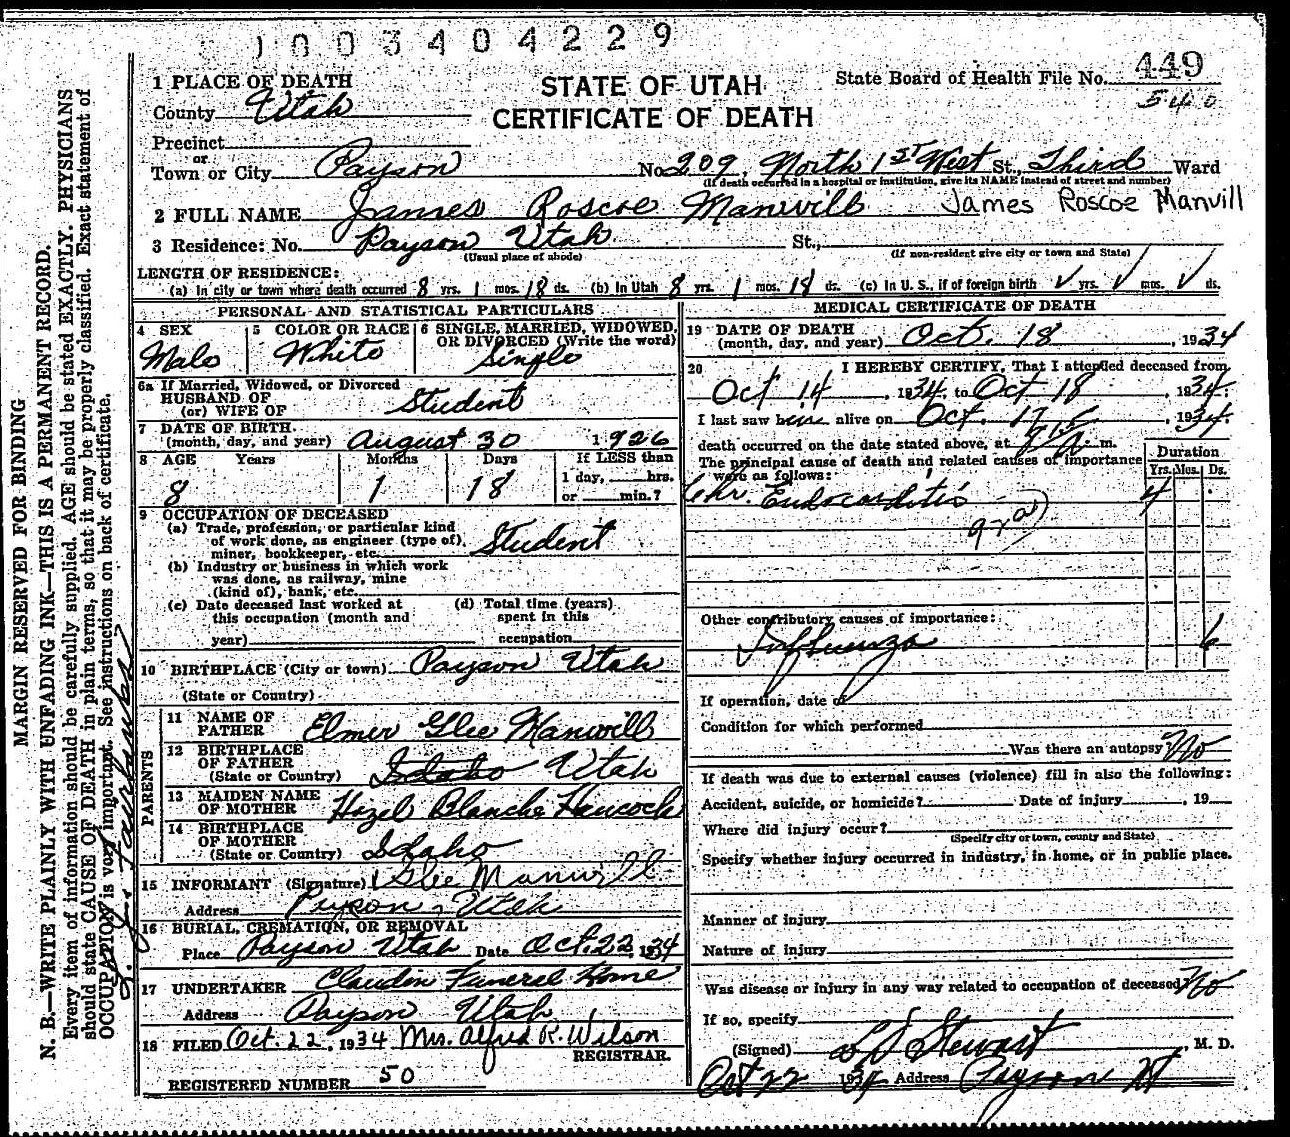 1003404229
STATE OF UTAH
CERTIFICATE OF DEATH
State Board of Health File No. 449
540
1 PLACE OF DEATH
County Utah
Precinct
or
Town or City Payson No. 209, North 1st West St., Third Ward
(If death occurred in a hospital or institution, give its NAME instead of street and number)
2 FULL NAME James Roscoe Manwill James Roscoe Manvill
3 Residence: No. Payson Utah St.,
(Usual place of abode) (If non-resident give city or town and State)
LENGTH OF RESIDENCE:
(a) In city or town where death occurred 8 yrs. 1 mos. 18 ds. (b) In Utah 8 yrs. 1 mos. 18 ds. (c) In U. S., if of foreign birth ✓ yrs. ✓ mos. ✓ ds.
PERSONAL AND STATISTICAL PARTICULARS
4 SEX 5 COLOR OR RACE 6 SINGLE, MARRIED, WIDOWED, OR DIVORCED (Write the word)
Male White Single
6a If Married, Widowed, or Divorced
HUSBAND OF
(or) WIFE OF Student
7 DATE OF BIRTH.
(month, day, and year) August 30 1926
8 AGE Years Months Days If LESS than
8 1 18 1 day, hrs.
or min.?
9 OCCUPATION OF DECEASED
(a) Trade, profession, or particular kind
of work done, as engineer (type of),
miner, bookkeeper, etc. Student
(b) Industry or business in which work
was done, as railway, mine
(kind of), bank, etc.
(c) Date deceased last worked at (d) Total time (years)
this occupation (month and spent in this
year) occupation
10 BIRTHPLACE (City or town) Payson Utah
(State or Country)
PARENTS
11 NAME OF
FATHER Elmer Glee Manwill
12 BIRTHPLACE
OF FATHER
(State or Country) Idaho Utah
13 MAIDEN NAME
OF MOTHER Hazel Blanche Hancock
14 BIRTHPLACE
OF MOTHER
(State or Country) Idaho
15 INFORMANT (Signature) Glee Manwill
Address Payson, Utah
16 BURIAL, CREMATION, OR REMOVAL
Place Payson Utah Date Oct. 22, 1934
17 UNDERTAKER Claudin Funeral Home
Address Payson Utah
18 FILED Oct. 22, 1934 Mrs. Alfred R. Wilson
REGISTRAR.
REGISTERED NUMBER 50
MEDICAL CERTIFICATE OF DEATH
19 DATE OF DEATH
(month, day, and year) Oct. 18, 1934
20 I HEREBY CERTIFY, That I attended deceased from
Oct 14, 1934, to Oct 18, 1934.
I last saw him alive on Oct. 17, 1934.
death occurred on the date stated above, at m.
The principal cause of death and related causes of importance
were as follows:
Duration
Yrs. Mos. Ds.
Chr. Endocarditis 4
92a
Other contributory causes of importance:
Influenza 6
If operation, date of
Condition for which performed
Was there an autopsy? No
If death was due to external causes (violence) fill in also the following:
Accident, suicide, or homicide? Date of injury , 19
Where did injury occur?
(Specify city or town, county and State)
Specify whether injury occurred in industry, in home, or in public place.
Manner of injury
Nature of injury
Was disease or injury in any way related to occupation of deceased? No
If so, specify
(Signed) L D Stewart, M. D.
Oct 22 1934 Address Payson Ut
MARGIN RESERVED FOR BINDING
N. B.—WRITE PLAINLY WITH UNFADING INK—THIS IS A PERMANENT RECORD.
Every item of information should be carefully supplied. AGE should be stated EXACTLY. PHYSICIANS
should state CAUSE OF DEATH in plain terms, so that it may be properly classified. Exact statement of
OCCUPATION is very important. See instructions on back of certificate.